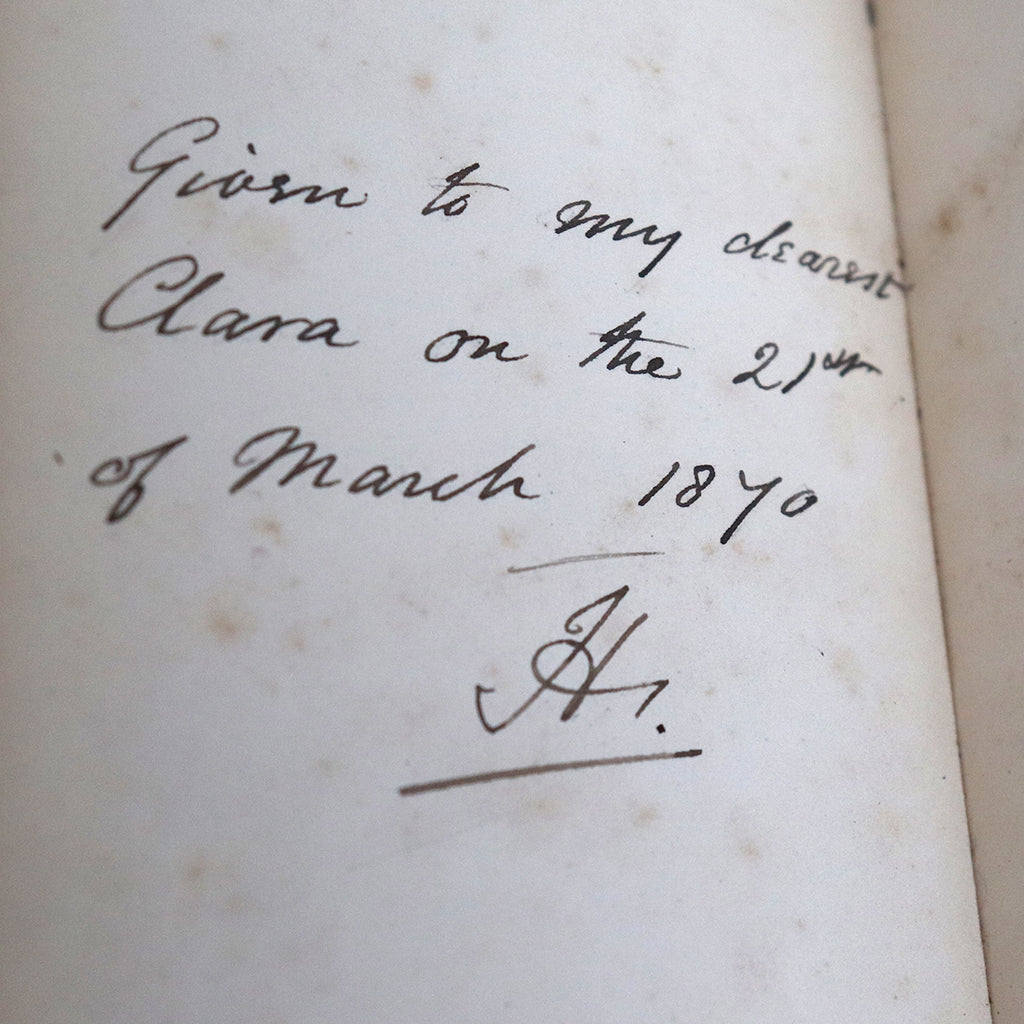 Given to my dearest
Clara on the 21st
of March 1870
H.